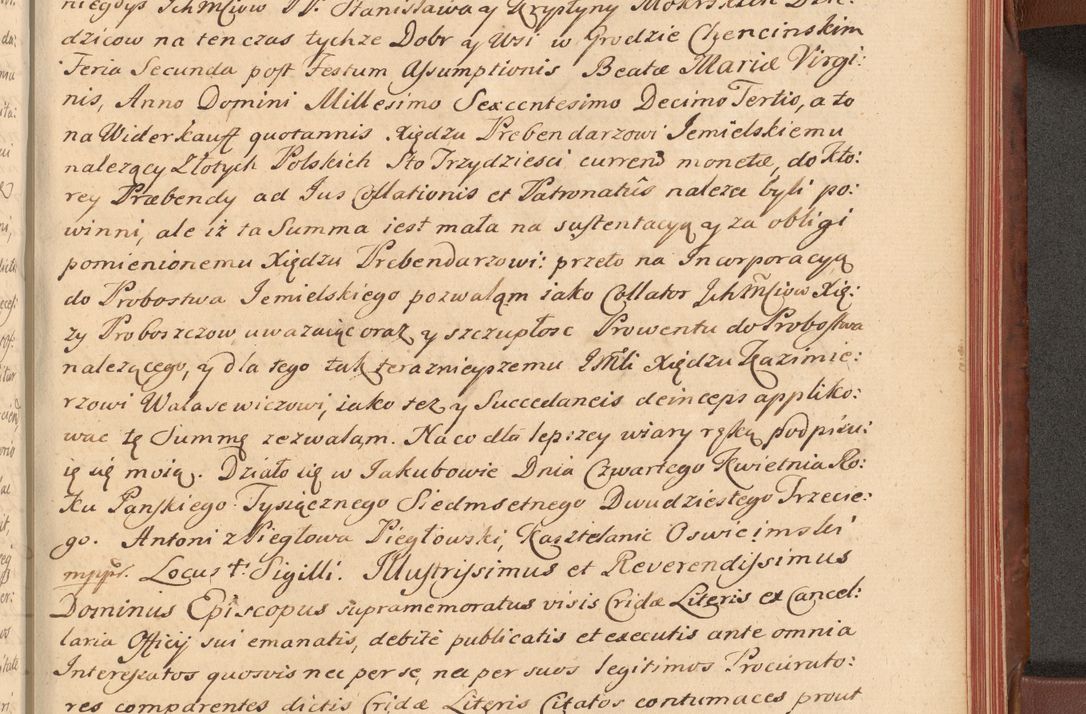 niegdys Jch Mciow PP. Stanisława y Krystyny Mokrskich Dzie:
dzicow na ten czas tychze Dobr y Wsi w Grodzie Chencinskim
Feria Secunda post Festum Assumptionis Beatæ Mariæ Virgi:
nis, Anno Domini Millesimo Sexcentesimo Decimo Tertio, a to
na Widerkauff quotannis Xiędzu Prebendarzowi Jemielskiemu
nalezący Złotych Polskich Sto Trzydziesci currens monetæ, do kto:
rey Præbendy ad Jus Collationis et Patronatûs nalezeć byli po:
winni, ale iż ta Summa iest mała na sustentacyą y za obligi
pomienionemu Xiędzu Prebendarzowi: przeto na Incorporacyą
do Probostwa Jemielskiego pozwaląm iako Collator Jch Mciow Xię:
zy Proboszczow uwazaiąc oraz y szczupłosc Prowentu do Probostwa
nalezącego, y dla tego tak teraznieyszemu JMci Xiędzu Kazimie:
rzowi Walasewiczowi, iako też y Succedaneis deinceps appliko:
wac tę Summę zezwalam. Na co dla lepszey wiary ręką podpisu:
ię się moią. Działo się w Jakubowie Dnia Czwartego Kwietnia Ro:
ku Pańskiego Tysiącznego Siedmsetnego Dwudziestego Trzecie:
go. Antoni z Piegłowa Piegłowski, Kasztelanic Oswiecimski
mppr. Locus † Sigilli. Illustrissimus et Reverendissimus
Dominus Episcopus supramemoratus visis Cridæ Literis ex Cancel:
laria Officij sui emanatis, debitè publicatis et executis ante omnia
Interessatos quosvis nec per se, nec per suos legitimos Procurato:
res comparentes dictis Cridæ Literis Citatos contumaces prout